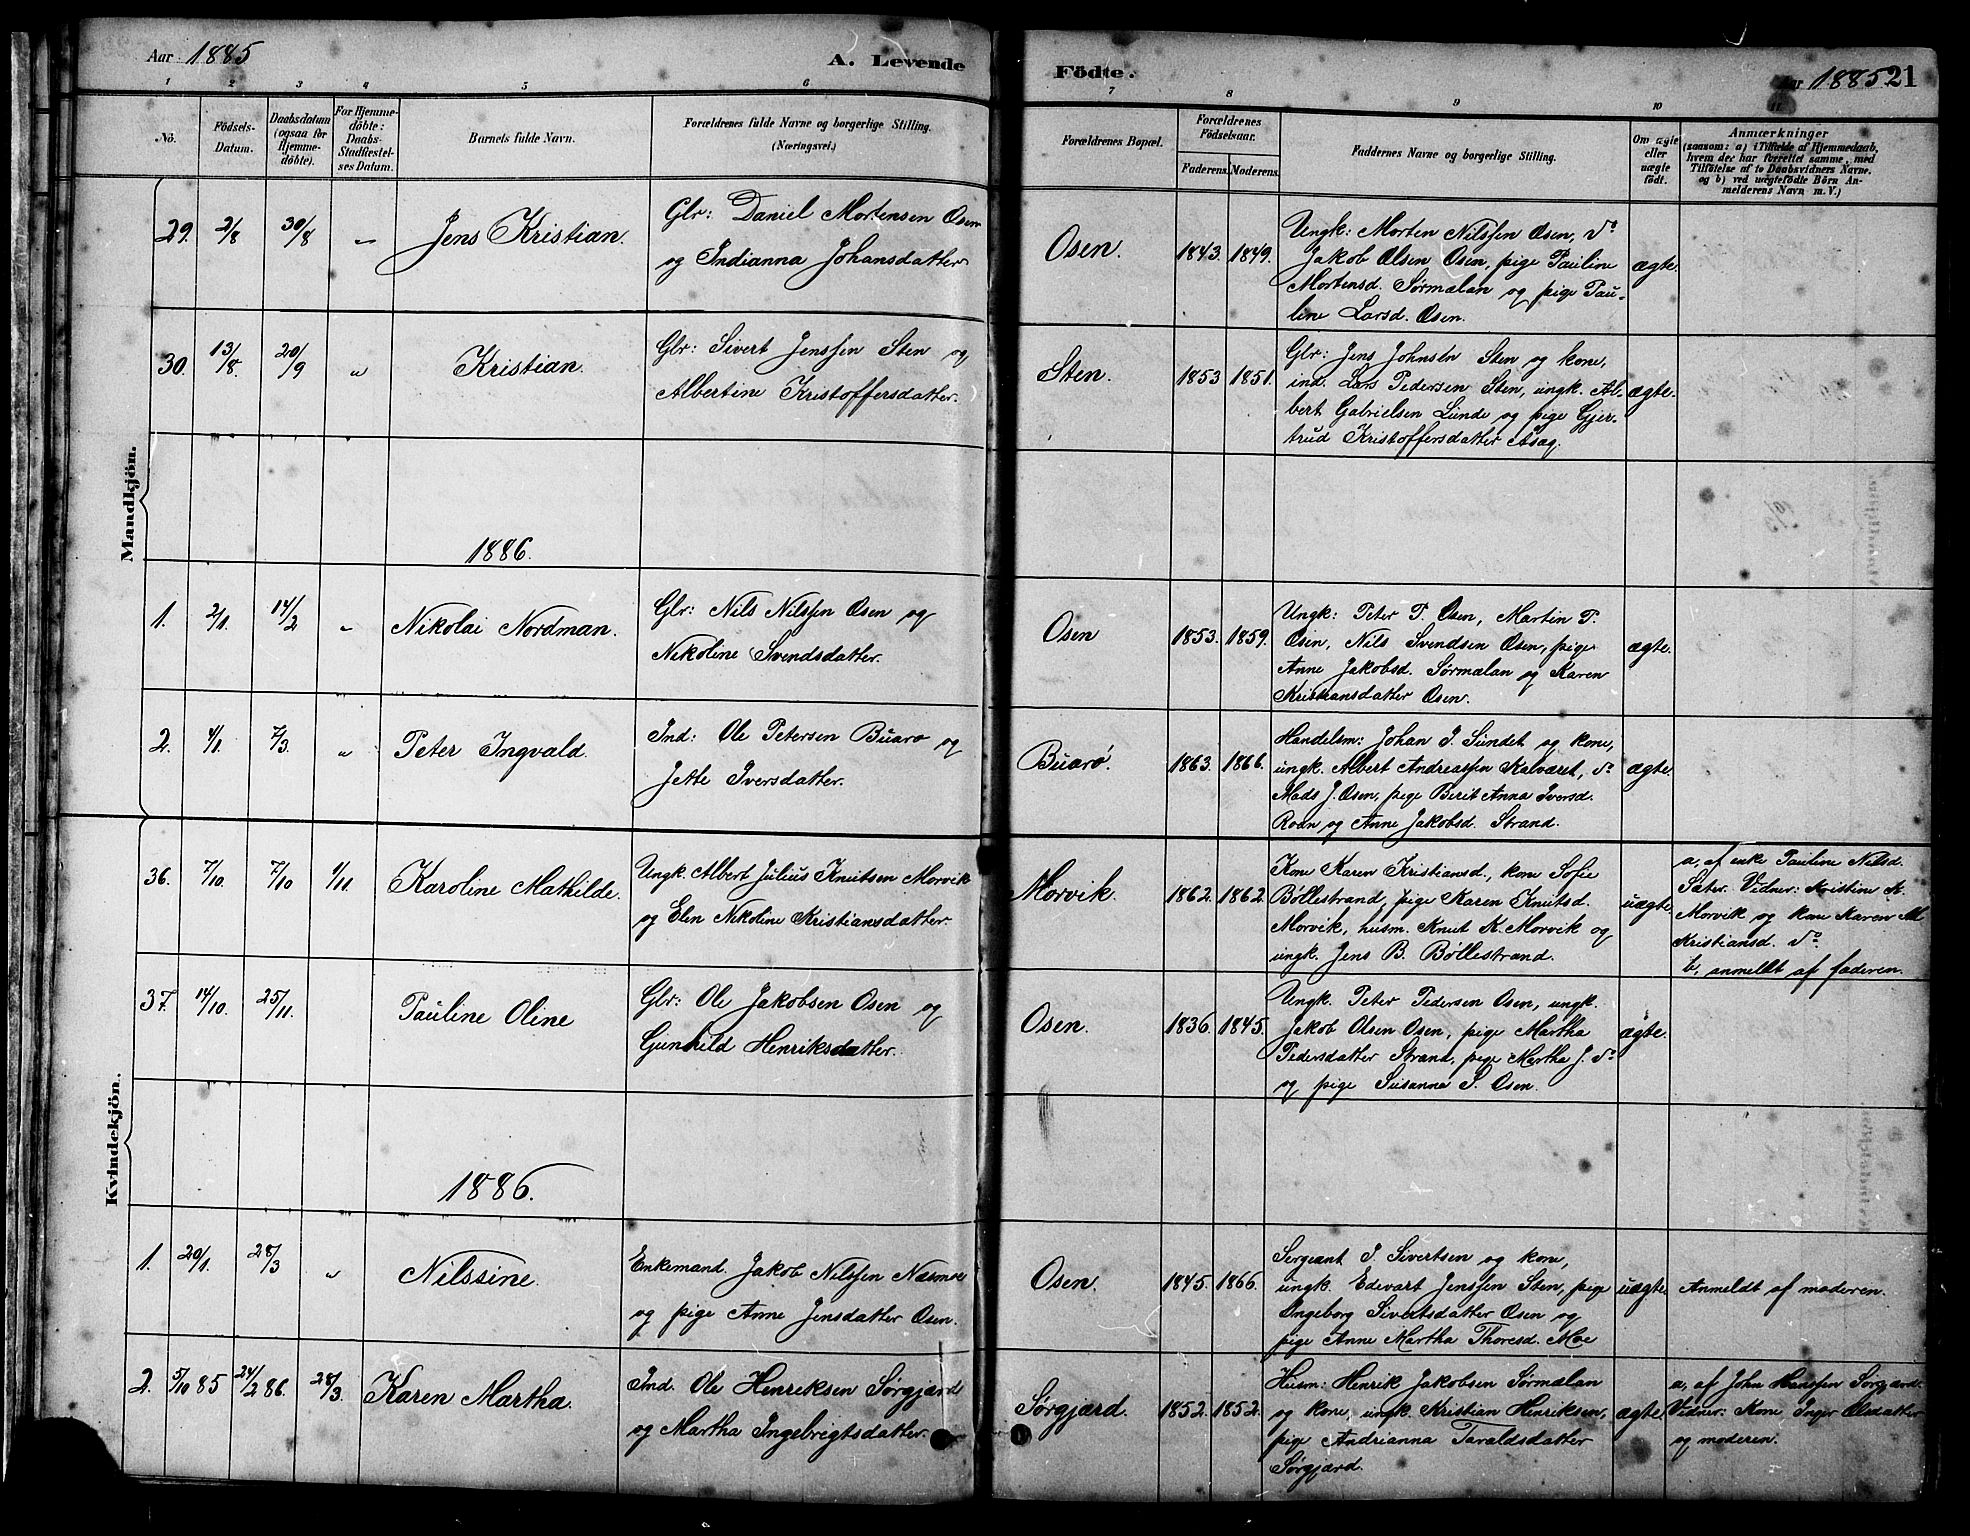 Aar 1885
A. Levende
Födte.
Aar 1885
21
1 2 3 4 5 6 7 8 9 10 11
No.
Födsels-
Datum.
Daabsdatum
(ogsaa for
Hjemme-
döbte).
For Hjemme-
döbte:
Daabs-
Stadfæstel-
ses Datum.
Barnets fulde Navn.
Forældrenes fulde Navne og borgerlige Stilling.
(Næringsvei.)
Forældrenes Bopæl.
Forældrenes
Födselsaar.
Faderens. Moderens.
Faddernes Navne og borgerlige Stilling.
Om ægte
eller
uægte
födt.
Anmærkninger
(saasom: a) i Tilfælde af Hjemmedaab,
hvem der har forrettet samme, med
Tilföielse af to Daabsvidners Navne.
og b) ved uægtefödte Börn An-
melderens Navn m. V.)
Mandkjön.
29. 2/8 30/8 " Jens Kristian.
Glr: Daniel Mortensen Osen
og Indianna Johansdatter
Osen. 1843. 1849.
Ungk: Morten Nilssen Osen, do
Jakob Olsen Osen, pige Pauline
Mortensd. Sørmalan og pige Pau-
line Larsd. Osen.
ægte.
30. 13/8. 20/9 " Kristian.
Glr: Sivert Jenssen Sten og
Albertine Kristoffersdatter.
Sten. 1853 1851.
Glr: Jens Johnsen Sten og kone,
ind. Lars Pedersen Sten, ungk. Al-
bert Gabrielsen Lunde og pige Gjer-
trud Kristoffersdatter Asag.
ægte.
1886.
1. 2/1. 14/2 " Nikolai Nordman.
Glr: Nils Nilssen Osen og
Nikoline Svendsdatter.
Osen 1853. 1859.
Ungk: Peter P. Osen, Martin P.
Osen, Nils Svendsen Osen, pige
Anne Jakobsd. Sørmalan og Karen
Kristiansdatter Osen.
ægte.
2. 4/1. 7/3. " Peter Ingvald.
Ind: Ole Petersen Buarø og
Jette Iversdatter.
Buarø. 1863. 1866.
Handelsm: Johan J. Sundet og kone,
ungk. Albert Andreassen Kalværet, do
Mads J. Osen, pige Berit Anna Iversd.
Roan og Anne Jakobsd. Strand.
ægte.
Kvindekjön.
36. 7/10. 7/10 1/11. Karoline Mathilde.
Ungk. Albert Julius Knutsen Morvik
og Elen Nikoline Kristiansdatter.
Morvik. 1862. 1862.
Kone Karen Kristiansd., kone Sofie
Bøllestrand, pige Karen Knutsd.
Morvik, husm. Knut K. Morvik og
ungk. Jens B. Bøllestrand.
uægte.
a, af enke Pauline Nilsd.
Sæter. Vidner: Kristine K.
Morvik og kone Karen M.
Kristiansd. do
b, anmeldt af faderen.
37. 14/10. 25/11. Pauline Oline
Glr: Ole Jakobsen Osen og
Gunhild Henriksdatter.
Osen. 1836. 1845.
Ungk. Peter Pedersen Osen, ungk.
Jakob Olsen Osen, pige Martha
Pedersdatter Strand, pige Martha J. do
og pige Susanna S. Osen.
ægte.
1886.
1. 20/1. 28/3 " Nilssine.
Enkemand Jakob Nilssen Næsmoe
og pige Anne Jensdatter Osen.
Osen. 1845. 1866.
Sergeant J. Sivertsen og kone,
ungk. Edevart Jenssen Sten, pige
Ingeborg Sivertsdatter Osen og
pige Anne Martha Thoresd. Moe
uægte.
Anmeldt af moderen.
2. 5/10 85 24/2 86. 28/3. Karen Martha.
Ind. Ole Henriksen Sørgjærd
og Martha Ingebrigtsdatter.
Sørgjærd. 1852. 1852.
Husm: Henrik Jakobsen Sørmalan
og kone, ungk. Kristian Henriksen,
pige Andrianna Taraldsdatter
Sørgjærd.
ægte.
a, af John Hanssen Sørgjærd.
Vidner: Kone Inger Olsdatter
og moderen.